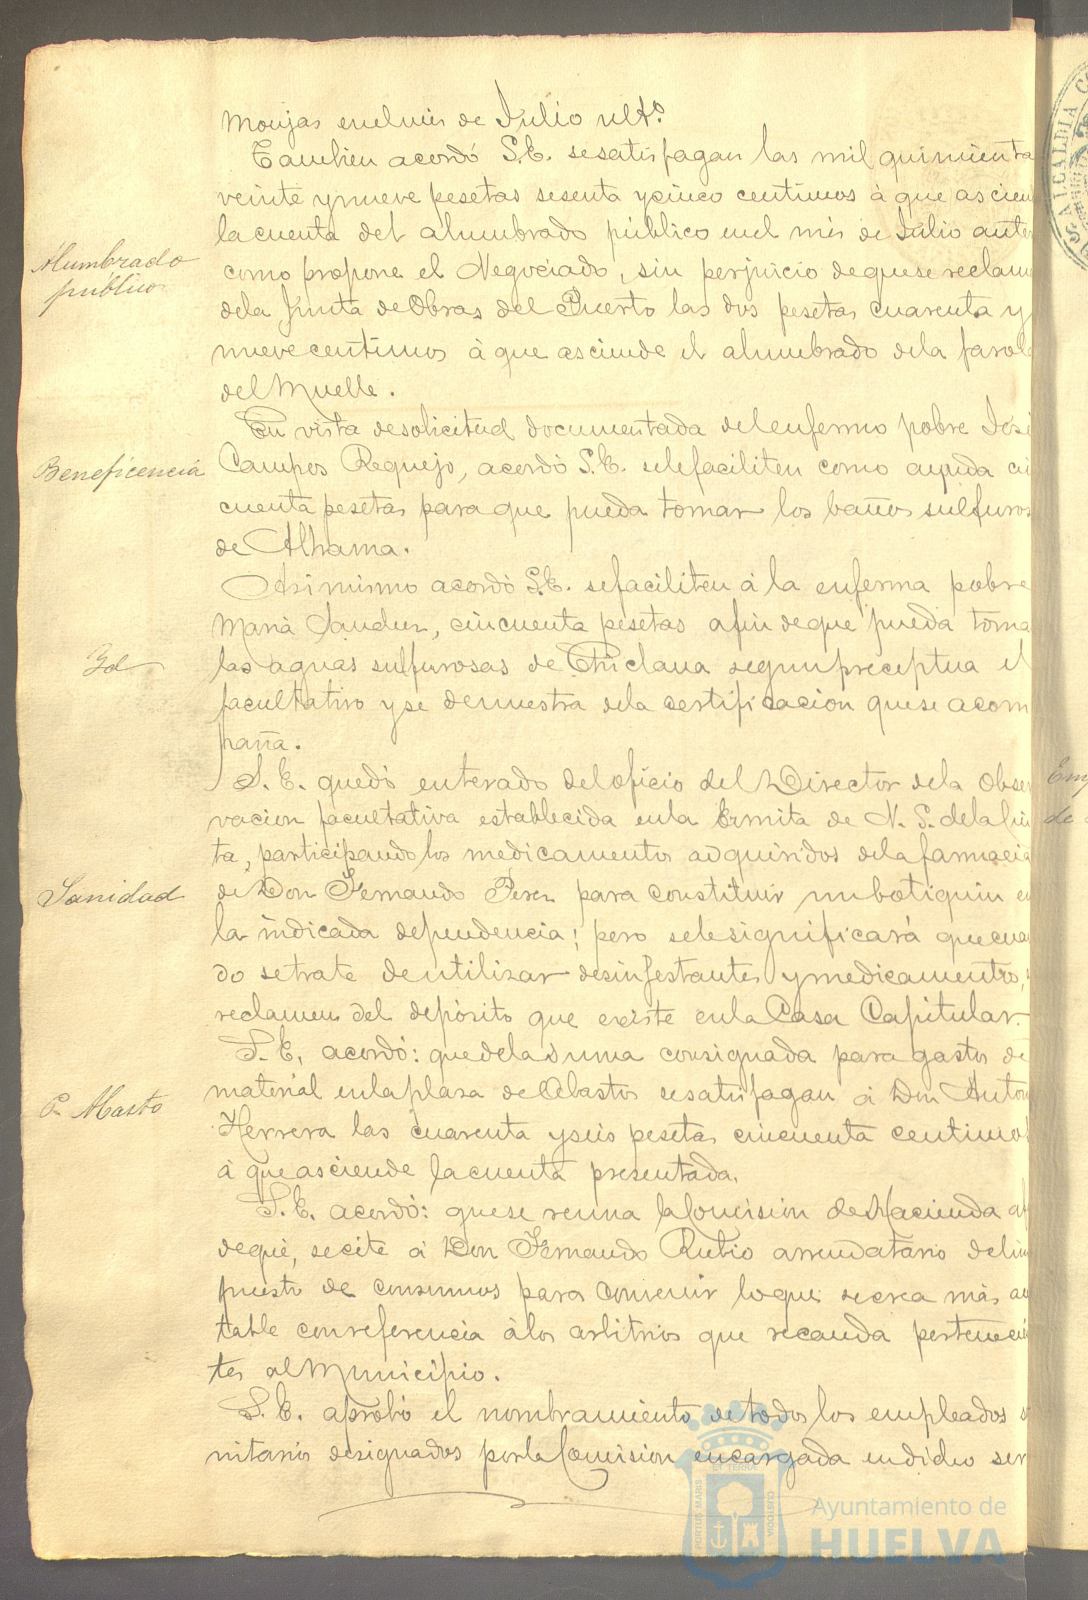 Monjas en el mes de Julio ulto.
Tambien acordó S.E. se satisfagan las mil quinienta
veinte y nueve pesetas sesenta y cinco centimos á que ascien
la cuenta del alumbrado público en el mes de Julio anter
Alumbrado
público
como propone el Negociado, sin perjuicio de que se reclame
de la Junta de Obras del Puerto las dos pesetas cuarenta y
nueve centimos á que asciende el alumbrado de la farola
del Muelle.
En vista de solicitud documentada del enfermo pobre José
Beneficencia
Campos Requejo, acordó S.E. se le faciliten como ayuda cin
cuenta pesetas para que pueda tomar los baños sulfuros
de Alhama.
Asimismo acordó S.E. se faciliten á la enferma pobre
Maria Sanchez, cincuenta pesetas afin de que pueda toma
Yd
las aguas sulfurosas de Chiclana segun preceptua el
facultativo y se demuestra de la certificacion que se acom
paña.
S. E. quedó enterado del oficio del Director de la Obser
vacion facultativa establecida en la Ermita de N. S. de la Cin
ta, participando los medicamentos adquiridos de la farmacia
Sanidad
de Don Fernando Perez para constituir un botiquin en
la indicada dependencia; pero se le significará que cuan
do se trate de utilizar desinfestantes y medicamentos,
reclamen del depósito que existe en la Casa Capitular.
S. E. acordó: que de la suma consignada para gastos de
material en la plaza de Abastos se satisfagan á Don Anton
Pa. Abasto
Herrera las cuarenta y seis pesetas cincuenta centimos
á que asciende la cuenta presentada.
S. E. acordó: que se reuna la Comision de Hacienda af
de que, se cite á Don Fernando Rubio arrendatario del im
puesto de consumos para convenir lo que se crea más ac
table con referencia á los arbitrios que recauda pertenecien
tes al Municipio.
S. E. aprobó el nombramiento de todos los empleados sa
nitarios designados por la Comision encargada en dicho ser
Ayuntamiento de
HUELVA
PORTUS MARIS
ET TERRAE
CUSTODIA
ALCALDIA C
Em
de